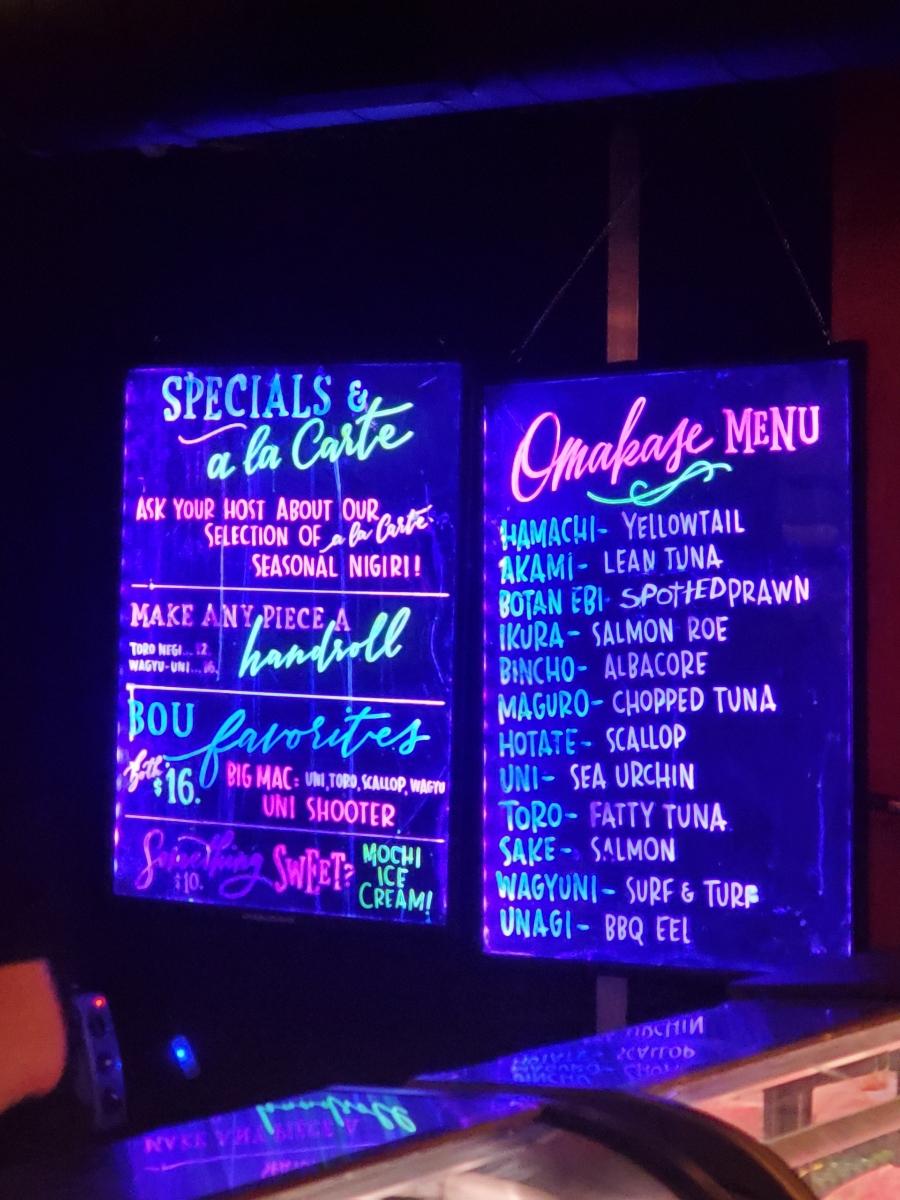 SPECIALS &
a la Carte
ASK YOUR HOST ABOUT OUR
SELECTION OF a la Carte
SEASONAL NIGIRI!
MAKE ANY PIECE A
handroll
TORO NEGI... 12.
WAGYU-UNI... 16.
BOU favorites
Both: $16.
BIG MAC: UNI, TORO, SCALLOP, WAGYU
UNI SHOOTER
Something SWEET?
$10.
MOCHI
ICE
CREAM!
Omakase MENU
HAMACHI- YELLOWTAIL
AKAMI- LEAN TUNA
BOTAN EBI- SPOTTED PRAWN
IKURA- SALMON ROE
BINCHO- ALBACORE
MAGURO- CHOPPED TUNA
HOTATE- SCALLOP
UNI- SEA URCHIN
TORO- FATTY TUNA
SAKE- SALMON
WAGYUNI- SURF & TURF
UNAGI- BBQ EEL